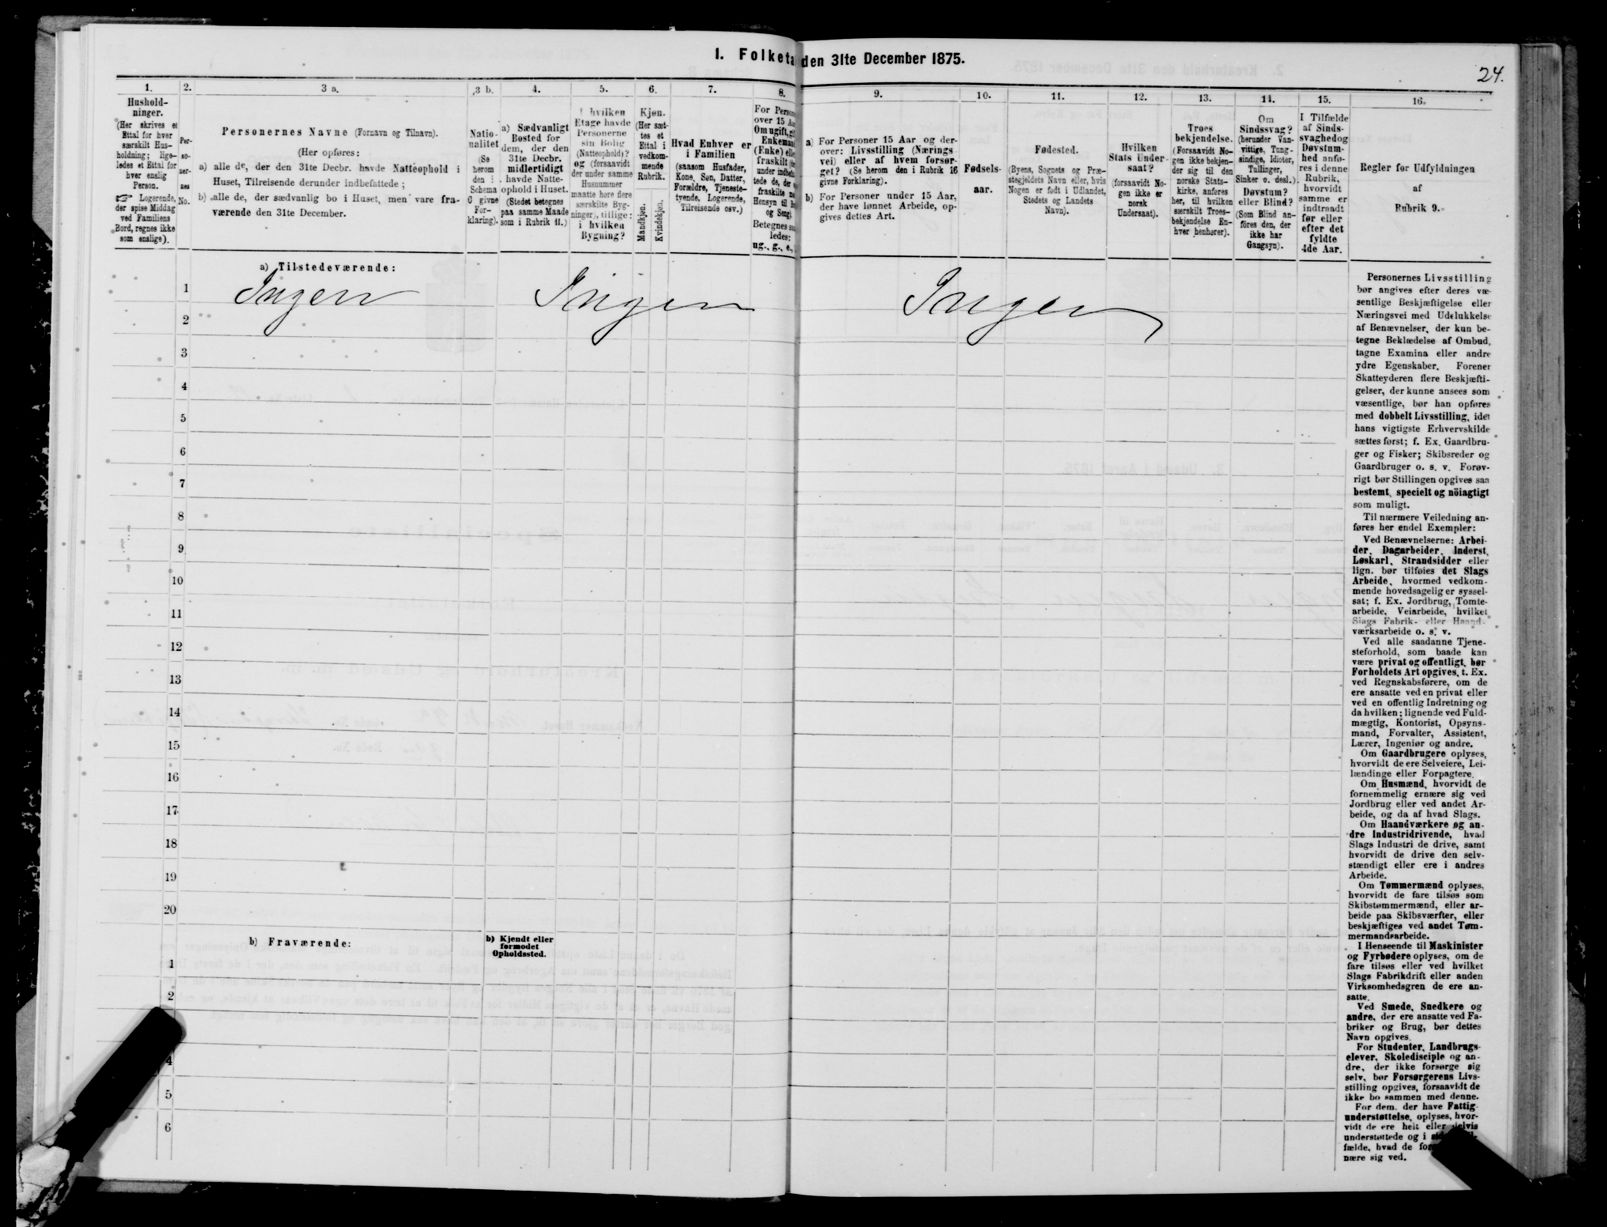 24.
I. Folketa den 31te December 1875.
1.
Hushold-
ninger.
(Her skrives et
Ettal for hver
særskilt Hus-
holdning; lige-
ledes et Ettal for
hver enslig
Person.
☞ Logerende,
der spise Middag
ved Familiens
Bord, regnes ikke
som enslige).
2.
Per-
so-
ner-
nes
No.
3 a.
Personernes Navne (Fornavn og Tilnavn).
(Her opføres:
a) alle de, der den 31te Decbr. havde Natteophold i
Huset, Tilreisende derunder indbefattede;
b) alle de, der sædvanlig bo i Huset, men vare fra-
værende den 31te December.
3 b.
Natio-
nalitet
(Se
herom
den i
Schema
0 givne
For-
klaring).
4.
a) Sædvanligt
Bosted for
dem, der den
31te Decbr.
midlertidigt
havde Natte-
ophold i Huset.
(Stedet betegnes
paa samme Maade
som i Rubrik 11.)
5.
I hvilken
Etage havde
Personerne
sin Bolig
(Natteophold)?
og (forsaavidt
der under samme
Husnummer
maatte høre flere
særskilte Byg-
ninger), tillige:
i hvilken
Bygning?
6.
Kjøn.
(Her sæt-
tes et
Ettal i
vedkom-
mende
Rubrik.
Mandkjøn.
Kvindekjøn.
7.
Hvad Enhver er
i Familien
(saasom Husfader,
Kone, Søn, Datter,
Forældre, Tjeneste-
tyende, Logerende,
Tilreisende osv.)
8.
For Person
over 15 Aa
Om ugift, g
Enkeman
(Enke) ell
fraskilt
under indbefa
tede de, der
fraskilte m
Hensyn til b
og Seng.
Betegnes saa
ledes:
ug., g., e.,
9.
a) For Personer 15 Aar og der-
over: Livsstilling (Nærings-
vei) eller af hvem forsør-
get? (Se herom den i Rubrik 16
givne Forklaring).
b) For Personer under 15 Aar,
der have lønnet Arbeide, op-
gives dettes Art.
10.
Fødsels-
aar.
11.
Fødested.
(Byens, Sognets og Præ-
stegjeldets Navn eller, hvis
Nogen er født i Udlandet,
Stedets og Landets
Navn).
12.
Hvilken
Stats Under-
saat?
(forsaavidt No-
gen ikke er
norsk
Undersaat).
13.
Troes
bekjendelse.
(Forsaavidt No-
gen ikke bekjen-
der sig til den
norske Stats-
kirke, anføres
her, til hvilken
særskilt Troes-
bekjendelse En-
hver henhører).
14.
Om
Sindssvag?
(herunder Van-
vittige, Tung-
sindige, Idioter,
Tullinger,
Sinker o. desl.).
Døvstum?
eller Blind?
(Som Blind an-
føres den, der
ikke har
Gangsyn).
15.
I Tilfælde
af Sinds-
svaghed og
Døvstum-
hed anfø-
res i denne
Rubrik,
hvorvidt
samme er
indtraadt
før eller
efter det
fyldte
4de Aar.
16.
Regler for Udfyldningen
af
Rubrik 9.
a) Tilstedeværende:
1 Ingen Ingen Ingen
2
3
4
5
6
7
8
9
10
11
12
13
14
15
16
17
18
19
20
b) Fraværende:
b) Kjendt eller
formodet
Opholdssted.
1
2
4
5
6
Personernes Livsstilling
bør angives efter deres væ-
sentlige Beskjæftigelse eller
Næringsvei med Udelukkelse
af Benævnelser, der kun be-
tegne Beklædelse af Ombud,
tagne Examina eller andre
ydre Egenskaber. Forener
Skatteyderen flere Beskjæfti-
gelser, der kunne ansees som
væsentlige, bør han opføres
med dobbelt Livsstilling, idet
hans vigtigste Erhvervskilde
sættes først; f. Ex. Gaardbru-
ger og Fisker; Skibsreder og
Gaardbruger o. s. v. Forøv-
rigt bør Stillingen opgives saa
bestemt, specielt og nöiagtigt
som muligt.
Til nærmere Veiledning an-
føres her endel Exempler:
Ved Benævnelserne: Arbei-
der, Dagarbeider, Inderst,
Løskarl, Strandsidder eller
lign. bør tilføies det Slags
Arbeide, hvormed vedkom-
mende hovedsagelig er syssel-
sat; f. Ex. Jordbrug, Tomte-
arbeide, Veiarbeide, hvilket
Slags Fabrik- eller Haand-
værksarbeide o. s. v.
Ved alle saadanne Tjene-
steforhold, som baade kan
være privat og offentligt, bør
Forholdets Art opgives, t. Ex.
ved Regnskabsførere, om de
ere ansatte ved en privat eller
ved en offentlig Indretning og
da hvilken; lignende ved Fuld-
mægtig, Kontorist, Opsyns-
mand, Forvalter, Assistent,
Lærer, Ingeniør og andre.
Om Gaardbrugere oplyses,
hvorvidt de ere Selveiere, Lei-
lændinge eller Forpagtere.
Om Husmænd, hvorvidt de
fornemmelig ernære sig ved
Jordbrug eller ved andet Ar-
beide, og da af hvad Slags.
Om Haandværkere og an-
dre Industridrivende, hvad
Slags Industri de drive, samt
hvorvidt de drive den selv-
stændigt eller ere i andres
Arbeide.
Om Tømmermænd oplyses,
hvorvidt de fare tilsøs som
Skibstømmermænd, eller ar-
beide paa Skibsværfter, eller
beskjæftiges ved andet Tøm-
mermandsarbeide.
I Henseende til Maskinister
og Fyrbødere oplyses, om de
fare tilsøs eller ved hvilket
Slags Fabrikdrift eller anden
Virksomhedsgren de ere an-
satte.
Ved Smede, Snedkere og
andre, der ere ansatte ved Fa-
briker og Brug, bør dettes
Navn opgives.
For Studenter, Landbrugs-
elever, Skoledisciple og an-
dre, der ikke forsørge sig
selv, bør Forsørgerens Livs-
stilling opgives, forsaavidt de
ikke bo sammen med denne.
For dem, der have Fattig-
understøttelse, oplyses, hvor-
vidt de ere helt eller delvis
understøttede og i
fælde, hvad de for
nære sig ved.